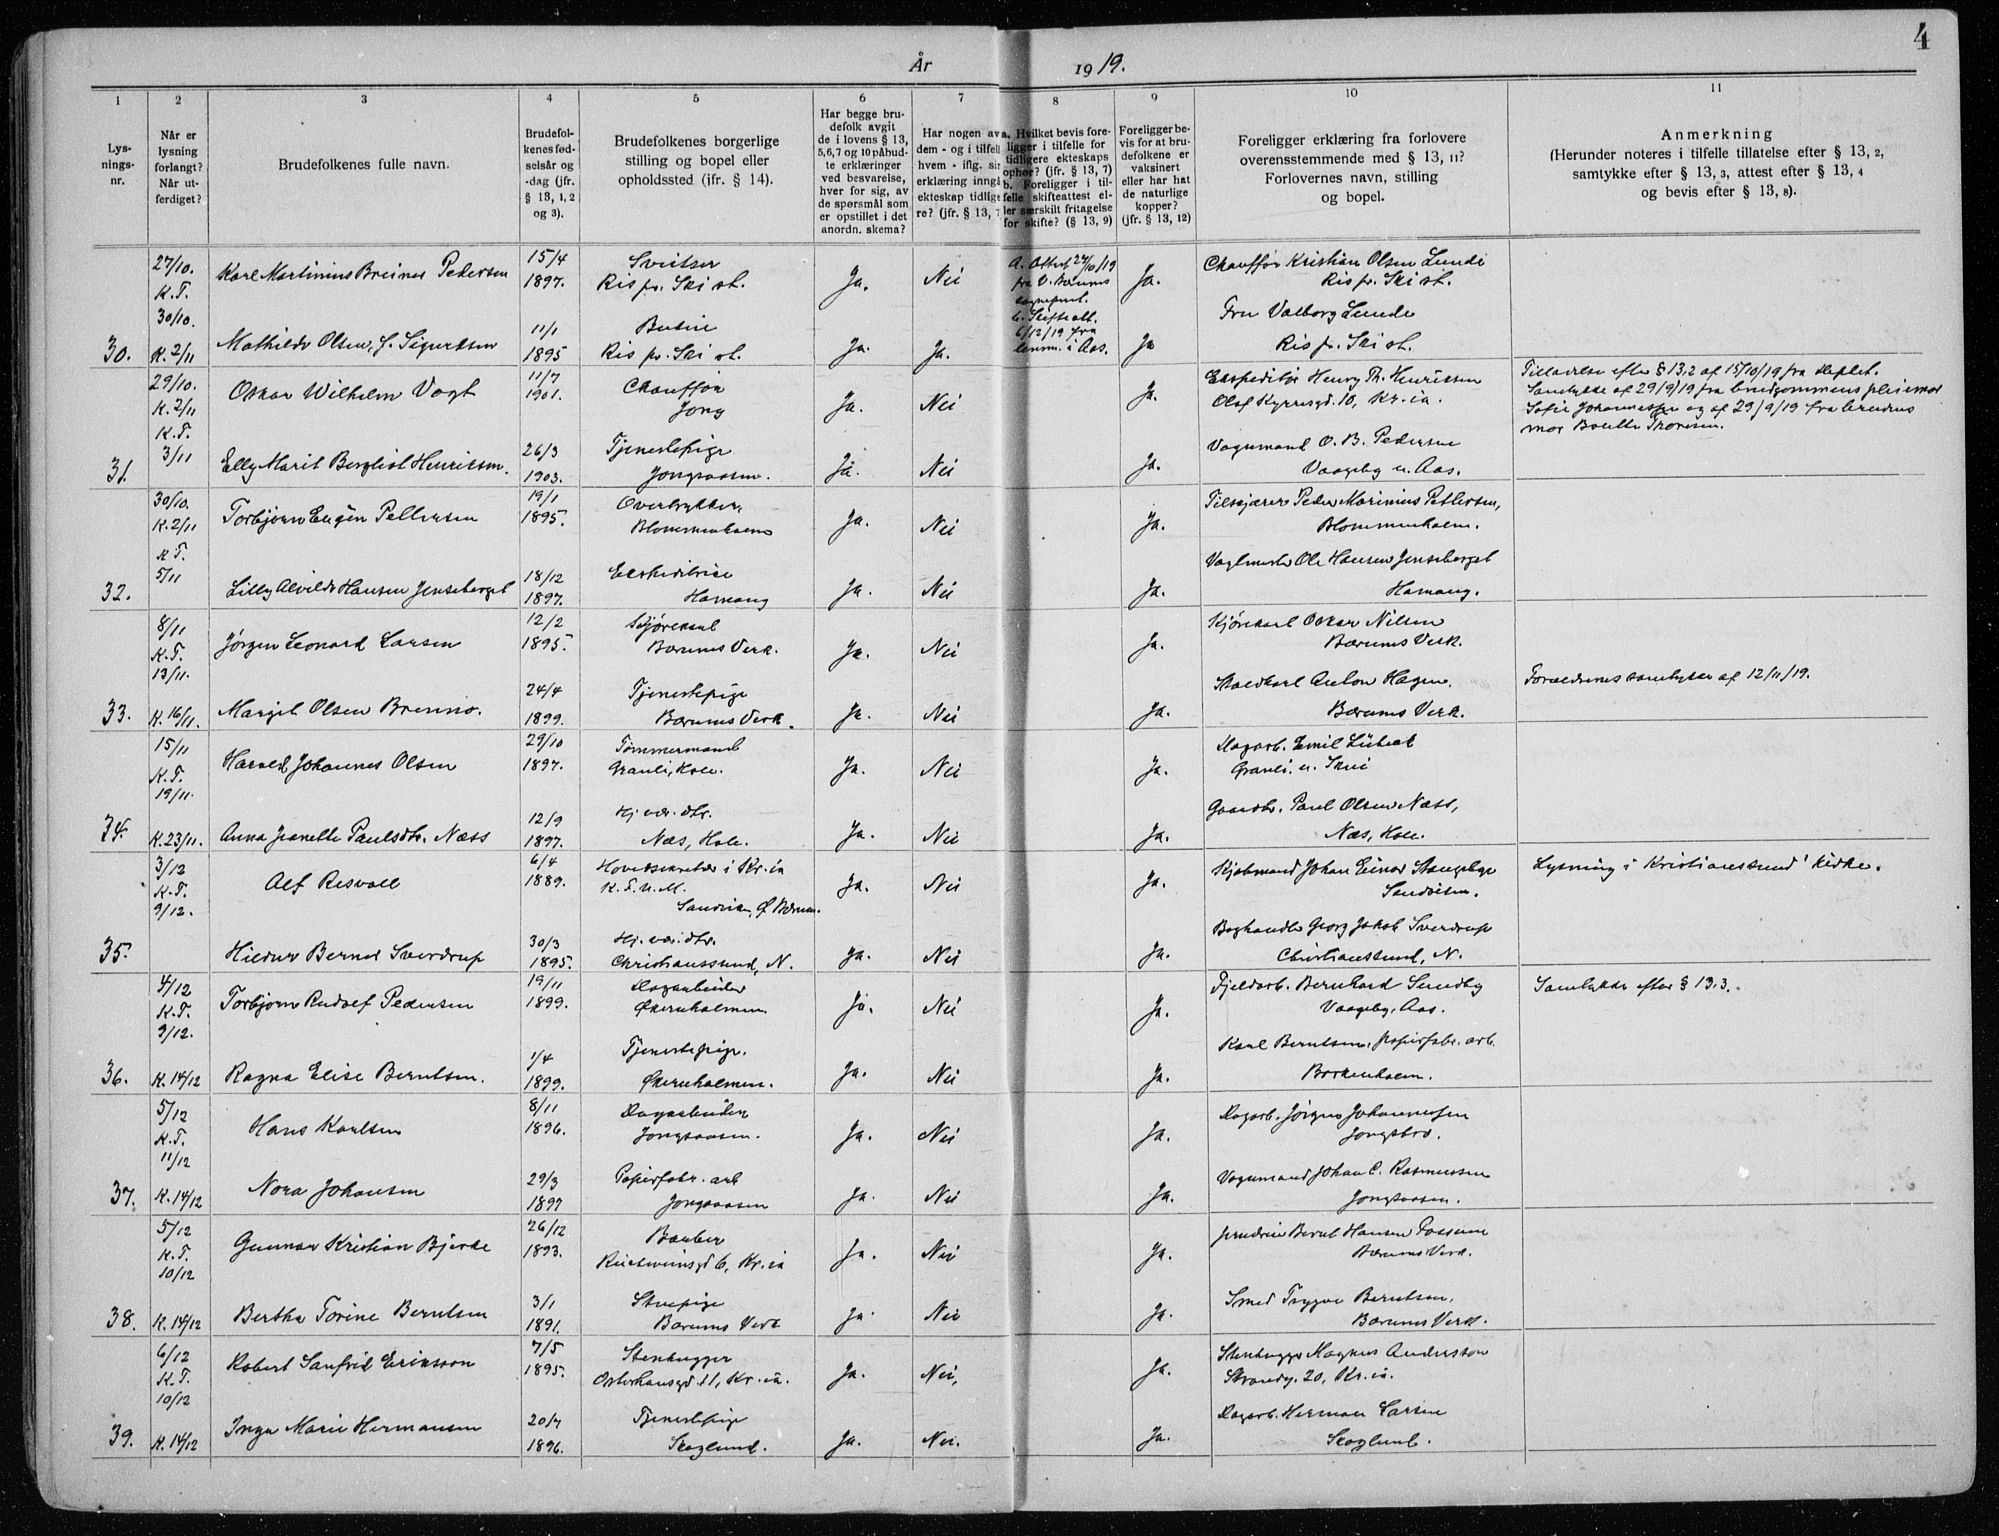 År 1919.
4
1 2 3 4 5 6 7 8 9 10 11
Lys-
nings-
nr.
Når er
lysning
forlangt?
Når ut-
ferdiget?
Brudefolkenes fulle navn.
Brudefol-
kenes fød-
selsår og
-dag (jfr.
§ 13, 1, 2
og 3).
Brudefolkenes borgerlige
stilling og bopel eller
opholdssted (ifr. § 14).
Har begge bru-
defolk avgit
de i lovens § 13,
5,6,7 og 10 påbud-
te erklæringer
ved besvarelse,
hver for sig, av
de spørsmål som
er opstillet i det
anordn. skema?
Har nogen av
dem - og i tilfell
hvem - iflg. si
erklæring inngå
ekteskap tidlige
re? (jfr. § 13,
a. Hvilket bevis fore-
ligger i tilfelle for
tidligere ekteskaps
ophør? (jfr. § 13, 7)
b. Foreligger i til-
felle skifteattest el-
ler særskilt fritagelse
for skifte? (§ 13, 9)
Foreligger be-
vis for at bru-
defolkene er
vaksinert
eller har hat
de naturlige
kopper?
(jfr. § 13, 12)
Foreligger erklæring fra forlovere
overensstemmende med § 13, 11?
Forlovernes navn, stilling
og bopel.
Anmerkning
(Herunder noteres i tilfelle tillatelse efter § 13, 2,
samtykke efter § 13, 3, attest efter § 13, 4
og bevis efter § 13, 8).
30.
27/10.
K.T.
30/10.
K. 2/11
Karl Martinius Breines Pedersen
15/4
1897.
Ris pr. Ski st.
Ja.
Nei
Ja.
Chauffør Kristian Olsen Lunde
Ris pr. Ski st.
Mathilde Olsen, f. Sigurtsen
11/1
1895
Ris pr. Ski st.
Ja.
Ja.
Ja
Fru Valborg Lunde
Ris pr. Ski st.
31.
29/10.
K. 2/11
K.T.
3/11
Oskar Wilhelm Vogt
11/7
1901.
Chauffør
Jong
Ja.
Nei
Ja.
Ekspeditør Henry Th. Henriksen
Olaf Kyrresgd. 10, Kr.ia.
Tilladelse efter § 13,2 af 15/10/19 fra deptet.
Samtykke af 29/9/19 fra brudgommens pleiemor
Sofie Johannessen og af 29/9/19 fra brudens
mor
Elly Marit Bergliot Henriksen.
26/3
1903.
Tjenestepige
Jongsaasen.
Ja
Nei
Ja.
Vognmand O. B. Pedersen
Vaageby n. Aas.
32.
30/10.
K. 2/11
K.T.
5/11
Torbjørn Eugen Pettersen
19/1
1895.
Overtrykker,
Blommenholm
Ja.
Nei
Ja.
Filskjærer Peder Marinius Pettersen,
Blommenholm.
Lilly Alvilde Hansen Jenseberget
18/12
1897.
Ekspeditrise
Hamang
Ja.
Nei
Ja.
Vogtmester Ole Hansen Jenseberget
Hamang.
33.
8/11
K.T.
13/11.
K. 16/11.
Jørgen Leonard Larsen
12/2
1895.
Kjørekarl
Bærums Verk.
Ja.
Nei
Ja.
Kjørekarl Oskar Nilsen
Bærums Verk.
Margit Olsen Brenno.
24/4
1899.
Tjenestepige
Bærums Verk.
Ja.
Nei
Ja.
Staldkarl Anton Hagen.
Bærums Verk.
Forældrenes samtykke af 12/11/19.
34.
15/11
K.T.
19/11.
K. 23/11.
Harald Johannes Olsen
29/10
1897.
Tømmermand
Granli, Hole.
Ja.
Nei
Ja.
Dagarb. Emil
Granli. n. Skui
Anna Jeanette Paulsdtr. Næss
12/9
1897.
Hj.vær. dtr.
Næs, Hole.
Ja.
Nei
Ja.
Gaardbr. Paul Olsen Næss,
Næs, Hole.
35.
3/12
K.T.
9/12.
Alf Risvoll
6/4
1889.
Hovedsekretær i Kr.ia
K.F.U.M.
Sandviken, Ø. Bærum.
Ja.
Nei
Ja.
Kjøbmand Johan Einar Stangebye
Sandviken.
Lysning i Kristianssund's Kirke.
Hildur Bernt Sverdrup
30/3
1895.
Hj.vær.dtr.
Christianssund, N.
Ja.
Nei
Ja.
Boghandler Georg Jakob Sverdrup
Christianssund, N.
36.
4/12
K.T.
9/12.
K. 14/12
Torbjørn Rudolf Pedersen
19/11
1899.
Dagarbeider
Økernholmen.
Ja.
Nei
Ja.
Fjeldarb. Bernhard Sundby
Vaageby, Aas.
Samtykke efter § 13,3.
Ragna Elise Berntsen.
1/4
1899.
Tjenestepige.
Økernholmen.
Ja.
Nei
Ja.
Karl Berntsen, papirfabr. arb.
Borkenholm.
37.
5/12
K.T.
11/12
K. 14/12
Hans Karlsen
8/11
1896.
Dagarbeider
Jongsaasen.
Ja.
Nei
Ja.
Dagarb. Jørgen Johannessen
Jongsbro.
Nora Johansen
29/3
1897
Papirfabr. arb
Jongsaasen
Ja.
Nei
Ja.
Vognmand Johan C. Rasmussen
Jongsaasen.
38.
5/12
K.T.
10/12
K. 14/12
Gunnar Kristian Bjerke
26/12
1893.
6, Kr.ia
Ja.
Nei
Ja.
Bernt Hansen Fossum
Bærums Verk.
Bertha Torine Berntsen
3/1
1891.
Stuepige
Bærums Verk
Ja
Nei
Ja.
Smed Trygve Berntsen,
Bærums Verk.
39.
6/12
K.T.
10/12
K. 14/12
Robert Sanfrid Eriksson
7/5
1895.
Stenhugger
Osterhausgd. 11, Kr.ia.
Ja.
Nei,
Ja.
Stenhugger Magnus Andersson
Strandg. 20, Kr.ia.
Inga Marie Hermansen
20/7
1896.
Tjenestepige
Skoglund.
Ja.
Nei.
Ja.
Dagarb. Herman Larsen
Skoglund.